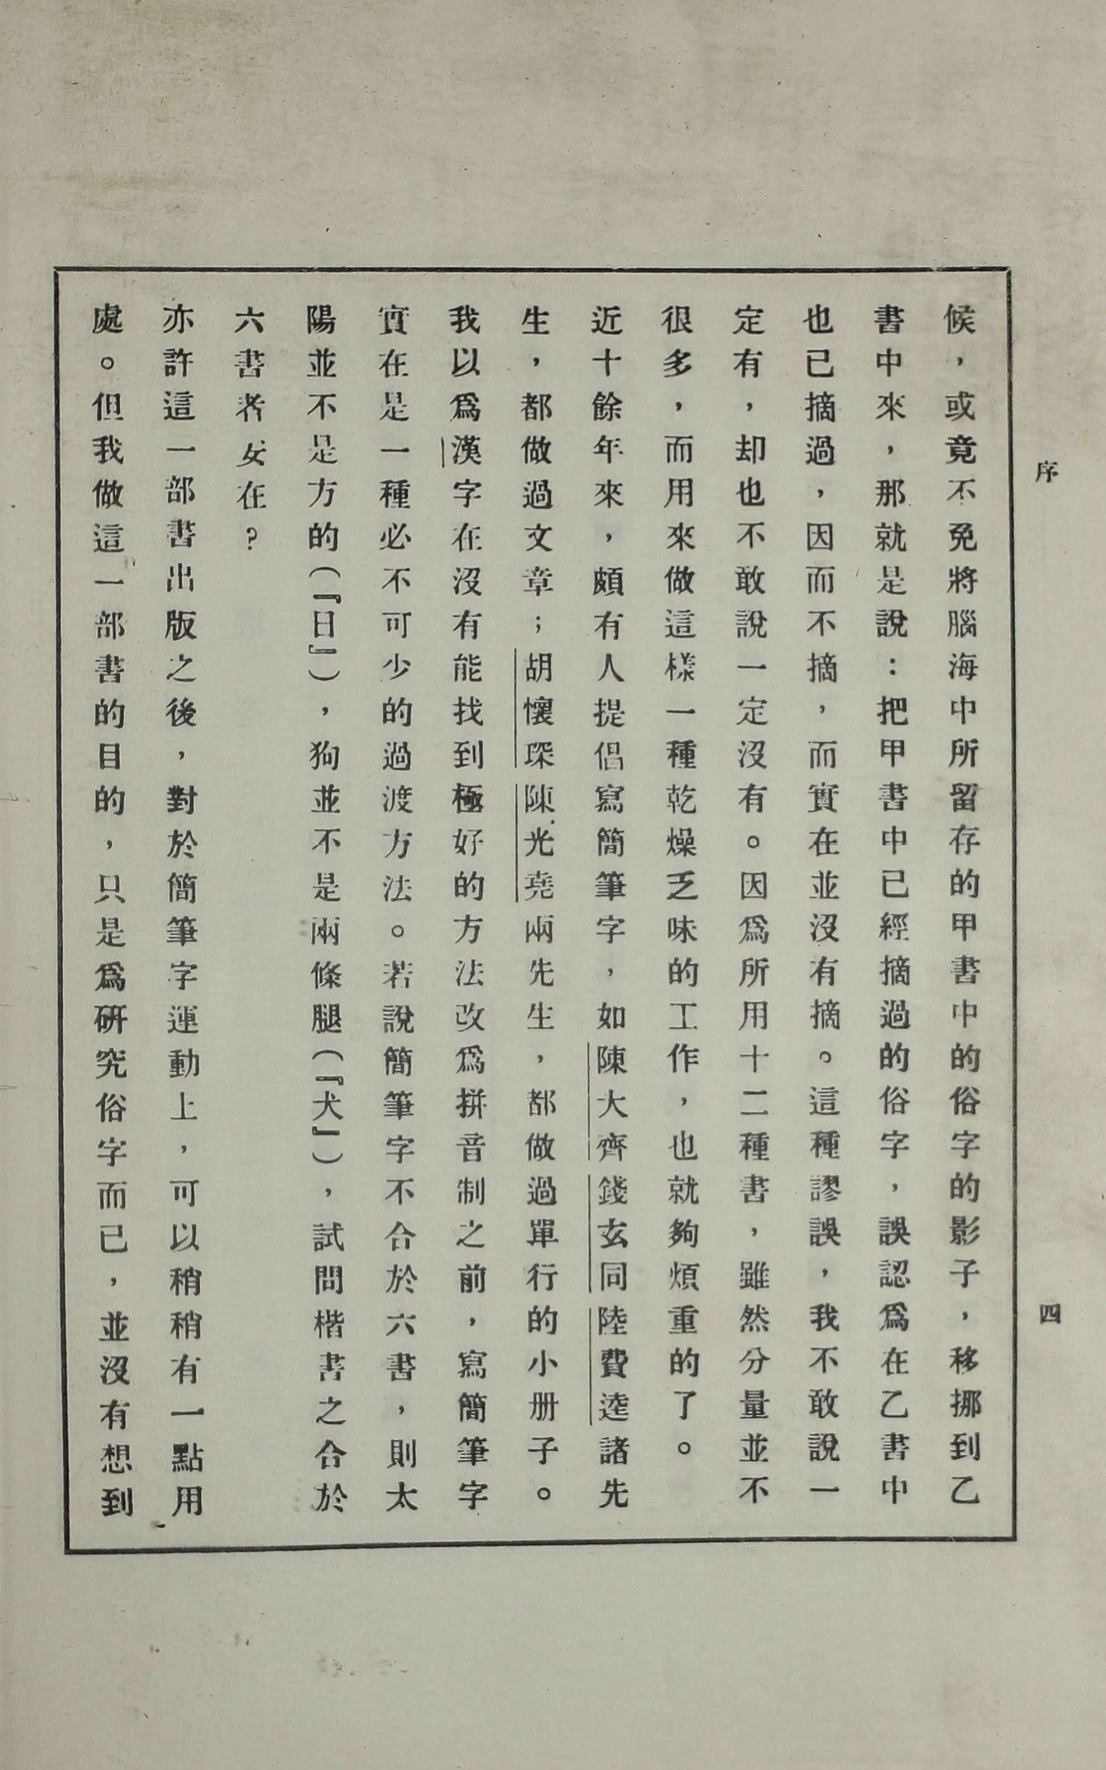 序
四
候，或竟不免將腦海中所留存的甲書中的俗字的影子，移挪到乙
書中來，那就是說：把甲書中已經摘過的俗字，誤認爲在乙書中
也已摘過，因而不摘，而實在並沒有摘。這種謬誤，我不敢說一
定有，却也不敢說一定沒有。因爲所用十二種書，雖然分量並不
很多，而用來做這樣一種乾燥乏味的工作，也就夠煩重的了。
近十餘年來，頗有人提倡寫簡筆字，如陳大齊錢玄同陸費逵諸先
生，都做過文章；胡懷琛陳光堯兩先生，都做過單行的小册子。
我以爲漢字在沒有能找到極好的方法改爲拼音制之前，寫簡筆字
實在是一種必不可少的過渡方法。若說簡筆字不合於六書，則太
陽並不是方的（『日』），狗並不是兩條腿（『犬』），試問楷書之合於
六書者安在？
亦許這一部書出版之後，對於簡筆字運動上，可以稍稍有一點用
處。但我做這一部書的目的，只是爲研究俗字而已，並沒有想到